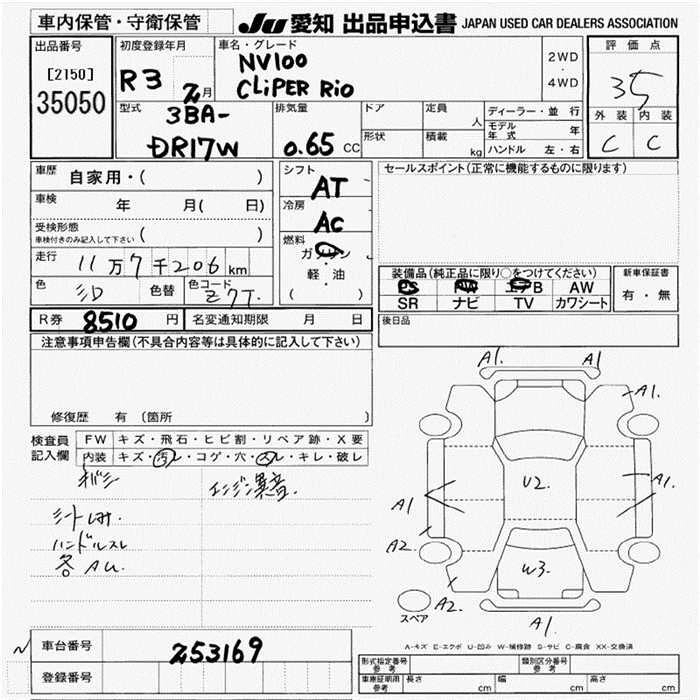 車内保管・守衛保管
JU 愛知 出品申込書 JAPAN USED CAR DEALERS ASSOCIATION
出品番号
[2150]
35050
初度登録年月
R3 年 2月
車名・グレード
NV100
CLiPER Rio
2WD
・
4WD
評価点
3.5
外装 内装
C C
型式
3BA-
DR17W
排気量
0.65 CC
ドア
形状
定員
人
積載
kg
ディーラー・並行
モデル年式 年
ハンドル 左・右
車歴 自家用・( )
車検 年 月( 日)
受検形態
車検付きのみ記入して下さい ( )
走行 11万7千206km
色 色替 色コード
Z7T.
シフト
AT
冷房
AC
燃料
ガソリン
・
軽油
( )
セールスポイント(正常に機能するものに限ります)
装備品(純正品に限り○をつけてください)
PS PW エアB AW
SR ナビ TV カワシート
新車保証書
有・無
R券 8510 円
名変通知期限 月 日
後日品
注意事項申告欄(不具合内容等は具体的に記入して下さい)
修復歴 有 〔箇所 〕
検査員記入欄
FW キズ・飛石・ヒビ割・リペア跡・X要
内装 キズ・汚レ・コゲ・穴・スレ・キレ・破レ
エンジン異音.
ハンドルスレ
各AU.
A1. A1
A1.
A1 U2. A1.
A2.
W3.
A2.
A1.
スペア
A-キズ E-エクボ U-凹み W-補修跡 S-サビ C-腐食 XX-交換済
車台番号 253169
登録番号
形式指定番号 参考
類別区分番号 参考
車庫証明用 参考
長さ cm
幅 cm
高さ cm